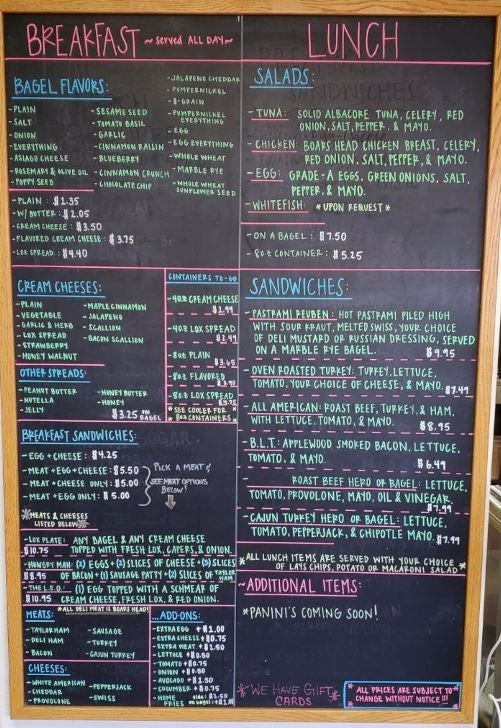 BREAKFAST ~served ALL DAY~
BAGEL FLAVORS:
-PLAIN
-SALT
-ONION
-EVERYTHING
-ASIAGO CHEESE
-ROSEMARY & OLIVE OIL
-POPPY SEED
-SESAME SEED
-TOMATO BASIL
-GARLIC
-CINNAMON RAISIN
-BLUEBERRY
-CINNAMON CRUNCH
-CHOCOLATE CHIP
-JALAPENO CHEDDAR
-PUMPERNICKEL
-8-GRAIN
-PUMPERNICKEL EVERYTHING
-EGG
-EGG EVERYTHING
-WHOLE WHEAT
-MARBLE RYE
-WHOLE WHEAT SUNFLOWER SEED
-PLAIN: $1.35
-W/BUTTER: $2.05
-CREAM CHEESE: $3.50
-FLAVORED CREAM CHEESE: $3.75
-LOX SPREAD: $4.40
CREAM CHEESES:
-PLAIN
-VEGETABLE
-GARLIC & HERB
-LOX SPREAD
-STRAWBERRY
-HONEY WALNUT
-MAPLE CINNAMON
-JALAPENO
-SCALLION
-BACON SCALLION
OTHER SPREADS:
-PEANUT BUTTER
-NUTELLA
-JELLY
-HONEY BUTTER
-HONEY
$3.25 ON BAGEL
CONTAINERS TO-GO
-4OZ CREAM CHEESE
-4OZ LOX SPREAD
-8OZ PLAIN
-8OZ FLAVORED
-8OZ LOX SPREAD
*SEE COOLER FOR
8OZ CONTAINERS*
BREAKFAST SANDWICHES:
-EGG+CHEESE: $4.25
-MEAT+EGG+CHEESE: $5.50
-MEAT+CHEESE ONLY: $5.00
-MEAT+EGG ONLY: $5.00
PICK A MEAT &
SEE MEAT OPTIONS
BELOW!
*MEATS & CHEESES
LISTED BELOW*
-LOX PLATE: ANY BAGEL & ANY CREAM CHEESE
$10.75 TOPPED WITH FRESH LOX, CAPERS, & ONION.
-HUNGRY MAN: (2) EGGS + (2) SLICES OF CHEESE + (3) SLICES
$8.95 OF BACON + (1) SAUSAGE PATTY + (2) SLICES OF TAYLOR HAM
-THE L.E.O: (1) EGG TOPPED WITH A SCHMEAR OF
$10.95 CREAM CHEESE, FRESH LOX, & RED ONION.
MEATS: *ALL DELI MEAT IS BOARS HEAD!
-TAYLOR HAM
-DELI HAM
-BACON
-SAUSAGE
-TURKEY
-CAJUN TURKEY
CHEESES:
-WHITE AMERICAN
-CHEDDAR
-PROVOLONE
-PEPPERJACK
-SWISS
...ADD-ONS:
-EXTRA EGG +$1.00
-EXTRA CHEESE +$0.75
-EXTRA MEAT +$2.50
-LETTUCE +$0.50
-TOMATO +$0.75
-ONION +$0.50
-AVOCADO +$1.50
-CUCUMBER +$0.75
-HOME FRIES
LUNCH
SALADS:
-TUNA: SOLID ALBACORE TUNA, CELERY, RED
ONION, SALT, PEPPER, & MAYO.
-CHICKEN: BOARS HEAD CHICKEN BREAST, CELERY,
RED ONION, SALT, PEPPER, & MAYO.
-EGG: GRADE-A EGGS, GREEN ONIONS, SALT,
PEPPER, & MAYO.
-WHITEFISH: *UPON REQUEST*
-ON A BAGEL: $7.50
-8OZ CONTAINER: $5.25
SANDWICHES:
-PASTRAMI REUBEN: HOT PASTRAMI PILED HIGH
WITH SOUR KRAUT, MELTED SWISS, YOUR CHOICE
OF DELI MUSTARD OR RUSSIAN DRESSING, SERVED
ON A MARBLE RYE BAGEL. $9.95
-OVEN ROASTED TURKEY: TURKEY, LETTUCE,
TOMATO, YOUR CHOICE OF CHEESE, & MAYO. $7.49
-ALL AMERICAN: ROAST BEEF, TURKEY, & HAM,
WITH LETTUCE, TOMATO, & MAYO. $8.95
-B.L.T: APPLEWOOD SMOKED BACON, LETTUCE,
TOMATO, & MAYO. $6.49
- ROAST BEEF HERO OR BAGEL: LETTUCE,
TOMATO, PROVOLONE, MAYO, OIL & VINEGAR. $7.99
-CAJUN TURKEY HERO OR BAGEL: LETTUCE,
TOMATO, PEPPERJACK, & CHIPOTLE MAYO. $7.99
*ALL LUNCH ITEMS ARE SERVED WITH YOUR CHOICE
OF LAYS CHIPS, POTATO OR MACARONI SALAD*
~ADDITIONAL ITEMS:
*PANINI'S COMING SOON!
*WE HAVE GIFT CARDS*
*ALL PRICES ARE SUBJECT TO
CHANGE WITHOUT NOTICE!!!